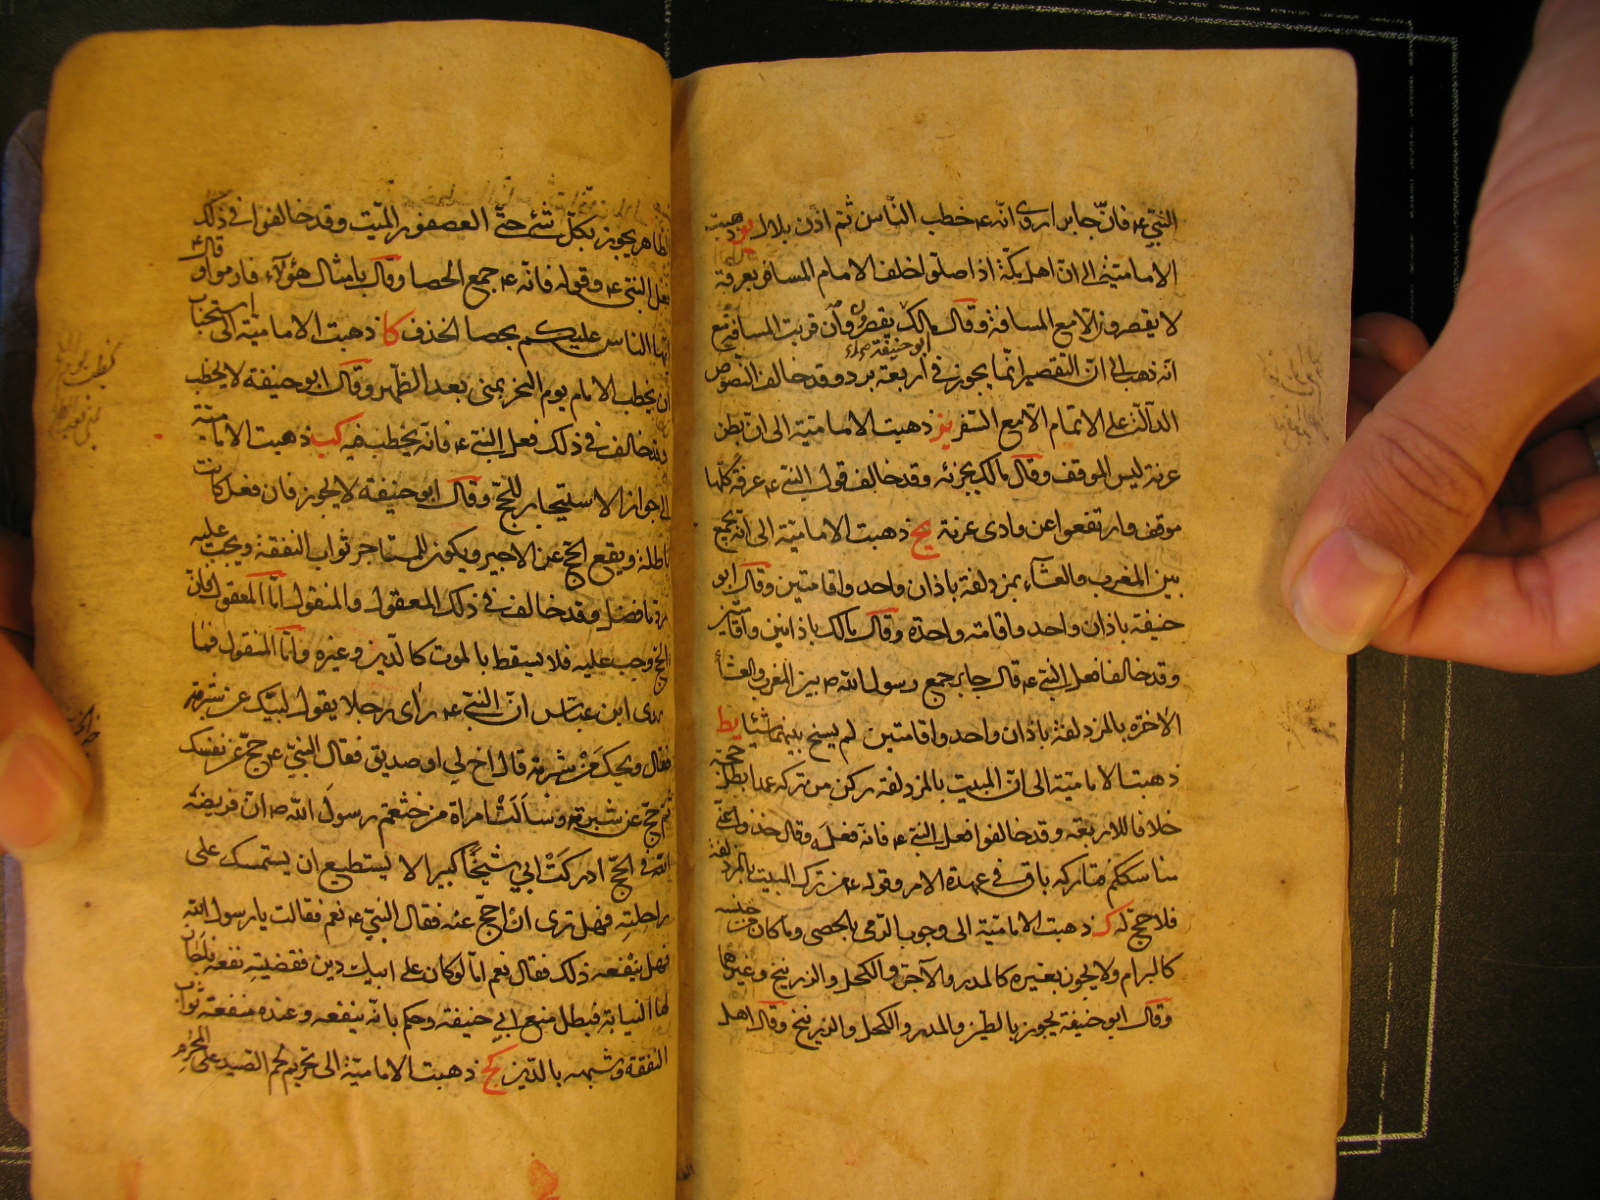 النبي ع فان جابرا روى انه ع خطب الناس ثم اذن بلال يو ذهبت
الامامية الى ان اهل مكة اذا صلوا خلف الامام المسافر بعرفة
لا يقصرون الا مع المسافة وقال مالك يقصرون وان قربت المسافة مع
ابو حنيفة
انه ذهب الى ان التقصير انما يجوز في اربعة برد وقد خالف النصوص
الدالة على الاتمام الا مع السفر يز ذهبت الامامية الى ان بطن
عرنة ليس الموقف وقال مالك يجزئه وقد خالف قول النبي ع عرفة كلها
موقف وارتفعوا عن وادى عرنة يح ذهبت الامامية الى انه يجمع
بين المغرب والعشاء بمزدلفة باذان واحد واقامتين وقال ابو
حنيفة باذان واحد واقامة واحدة وقال مالك باذانين واقامتين
وقد خالفا فعل النبي ع قال جابر جمع رسول الله ص بين المغرب والعشاء
الاخرة بالمزدلفة باذان واحد واقامتين لم يسبح بينهما شيئا يط
ذهبت الامامية الى ان المبيت بالمزدلفة ركن من تركه عمدا بطل حجه
خلافا للاربعة وقد خالفوا فعل النبي ع فانه فعله وقال خذوا عني
مناسككم فتاركه باق في عهدة الامر وقوله ع من ترك المبيت بالمزدلفة
فلا حج له ك ذهبت الامامية الى وجوب الرمى بالحصى وما كان من جنسه
كالبرام ولا يجوز بغيره كالمدر والآجر والكحل والزرنيخ وغيرهما
وقال ابو حنيفة يجوز بالطين والمدر والكحل والزرنيخ وقال اهل
الظاهر يجوز بكل شئ حتى العصفور الميت وقد خالفوا في ذلك
فعل النبي ع وقوله فانه ع جمع الحصا وقال بامثال هؤلاء فارموا وقال ع
ايها الناس عليكم بحصا الخذف كا ذهبت الامامية الى استحباب
ان يخطب الامام يوم النحر بمنى بعد الظهر وقال ابو حنيفة لا يخطب
وقد خالف في ذلك فعل النبي ع فانه يخطب فيه كب ذهبت الامامية
الى جواز الاستيجار للحج وقال ابو حنيفة لا يجوز فان فعل كانت
باطلة ويقع الحج عن الاجير ويكون للمستاجر ثواب النفقة ويجب عليه
رد ما فضل وقد خالف في ذلك المعقول والمنقول اما المعقول فلان
الحج وجب عليه فلا يسقط بالموت كالدين وغيره واما المنقول فما
روى ابن عباس ان النبي ع راى رجلا يقول لبيك عن شبرمة
فقال ويحك من شبرمة قال اخ لي او صديق فقال النبي ع حج عن نفسك
ثم حج عن شبرمة وسألت امراة من خثعم رسول الله ص ان فريضة
الله في الحج ادركت ابي شيخا كبيرا لا يستطيع ان يستمسك على
راحلته فهل ترى ان احج عنه فقال النبي ع نعم فقالت يا رسول الله
فهل ينفعه ذلك فقال نعم اما لو كان على ابيك دين فقضيته نفعه فاجاز
لها النيابة فبطل منع ابي حنيفة وحكم بانه ينفعه وعنده منفعة ثواب
النفقة وشبهه بالدين كج ذهبت الامامية الى تحريم لحم الصيد على المحرم